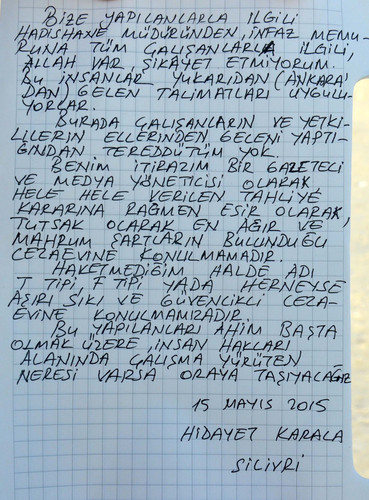 BİZE YAPILANLARLA İLGİLİ
HAPİSHANE MÜDÜRÜNDEN, İNFAZ MEMU-
RUNA TÜM ÇALIŞANLARLA İLGİLİ,
ALLAH VAR ŞİKAYET ETMİYORUM.
BU İNSANLAR YUKARIDAN (ANKARA'
DAN) GELEN TALİMATLARI UYGULU-
YORLAR.
BURADA ÇALIŞANLARIN VE YETKİ-
LİLERİN ELLERİNDEN GELENİ YAPTI-
ĞINDAN TEREDDÜTÜM YOK.
BENİM İTİRAZIM BİR GAZETECİ
VE MEDYA YÖNETİCİSİ OLARAK,
HELE HELE VERİLEN TAHLİYE
KARARINA RAĞMEN ESİR OLARAK,
TUTSAK OLARAK EN AĞIR VE
MAHRUM ŞARTLARIN BULUNDUĞU
CEZAEVİNE KONULMAMADIR.
HAKETMEDİĞİM HALDE ADI
T TİPİ, F TİPİ YADA HERNEYSE
AŞIRI SIKI VE GÜVENLİKLİ CEZA-
EVİNE KONULMAMIZADIR.
BU YAPILANLARI AHİM BAŞTA
OLMAK ÜZERE, İNSAN HAKLARI
ALANINDA ÇALIŞMA YÜRÜTEN
NERESİ VARSA ORAYA TAŞIYACAĞIZ
15 MAYIS 2015
HİDAYET KARACA
SİLİVRİ